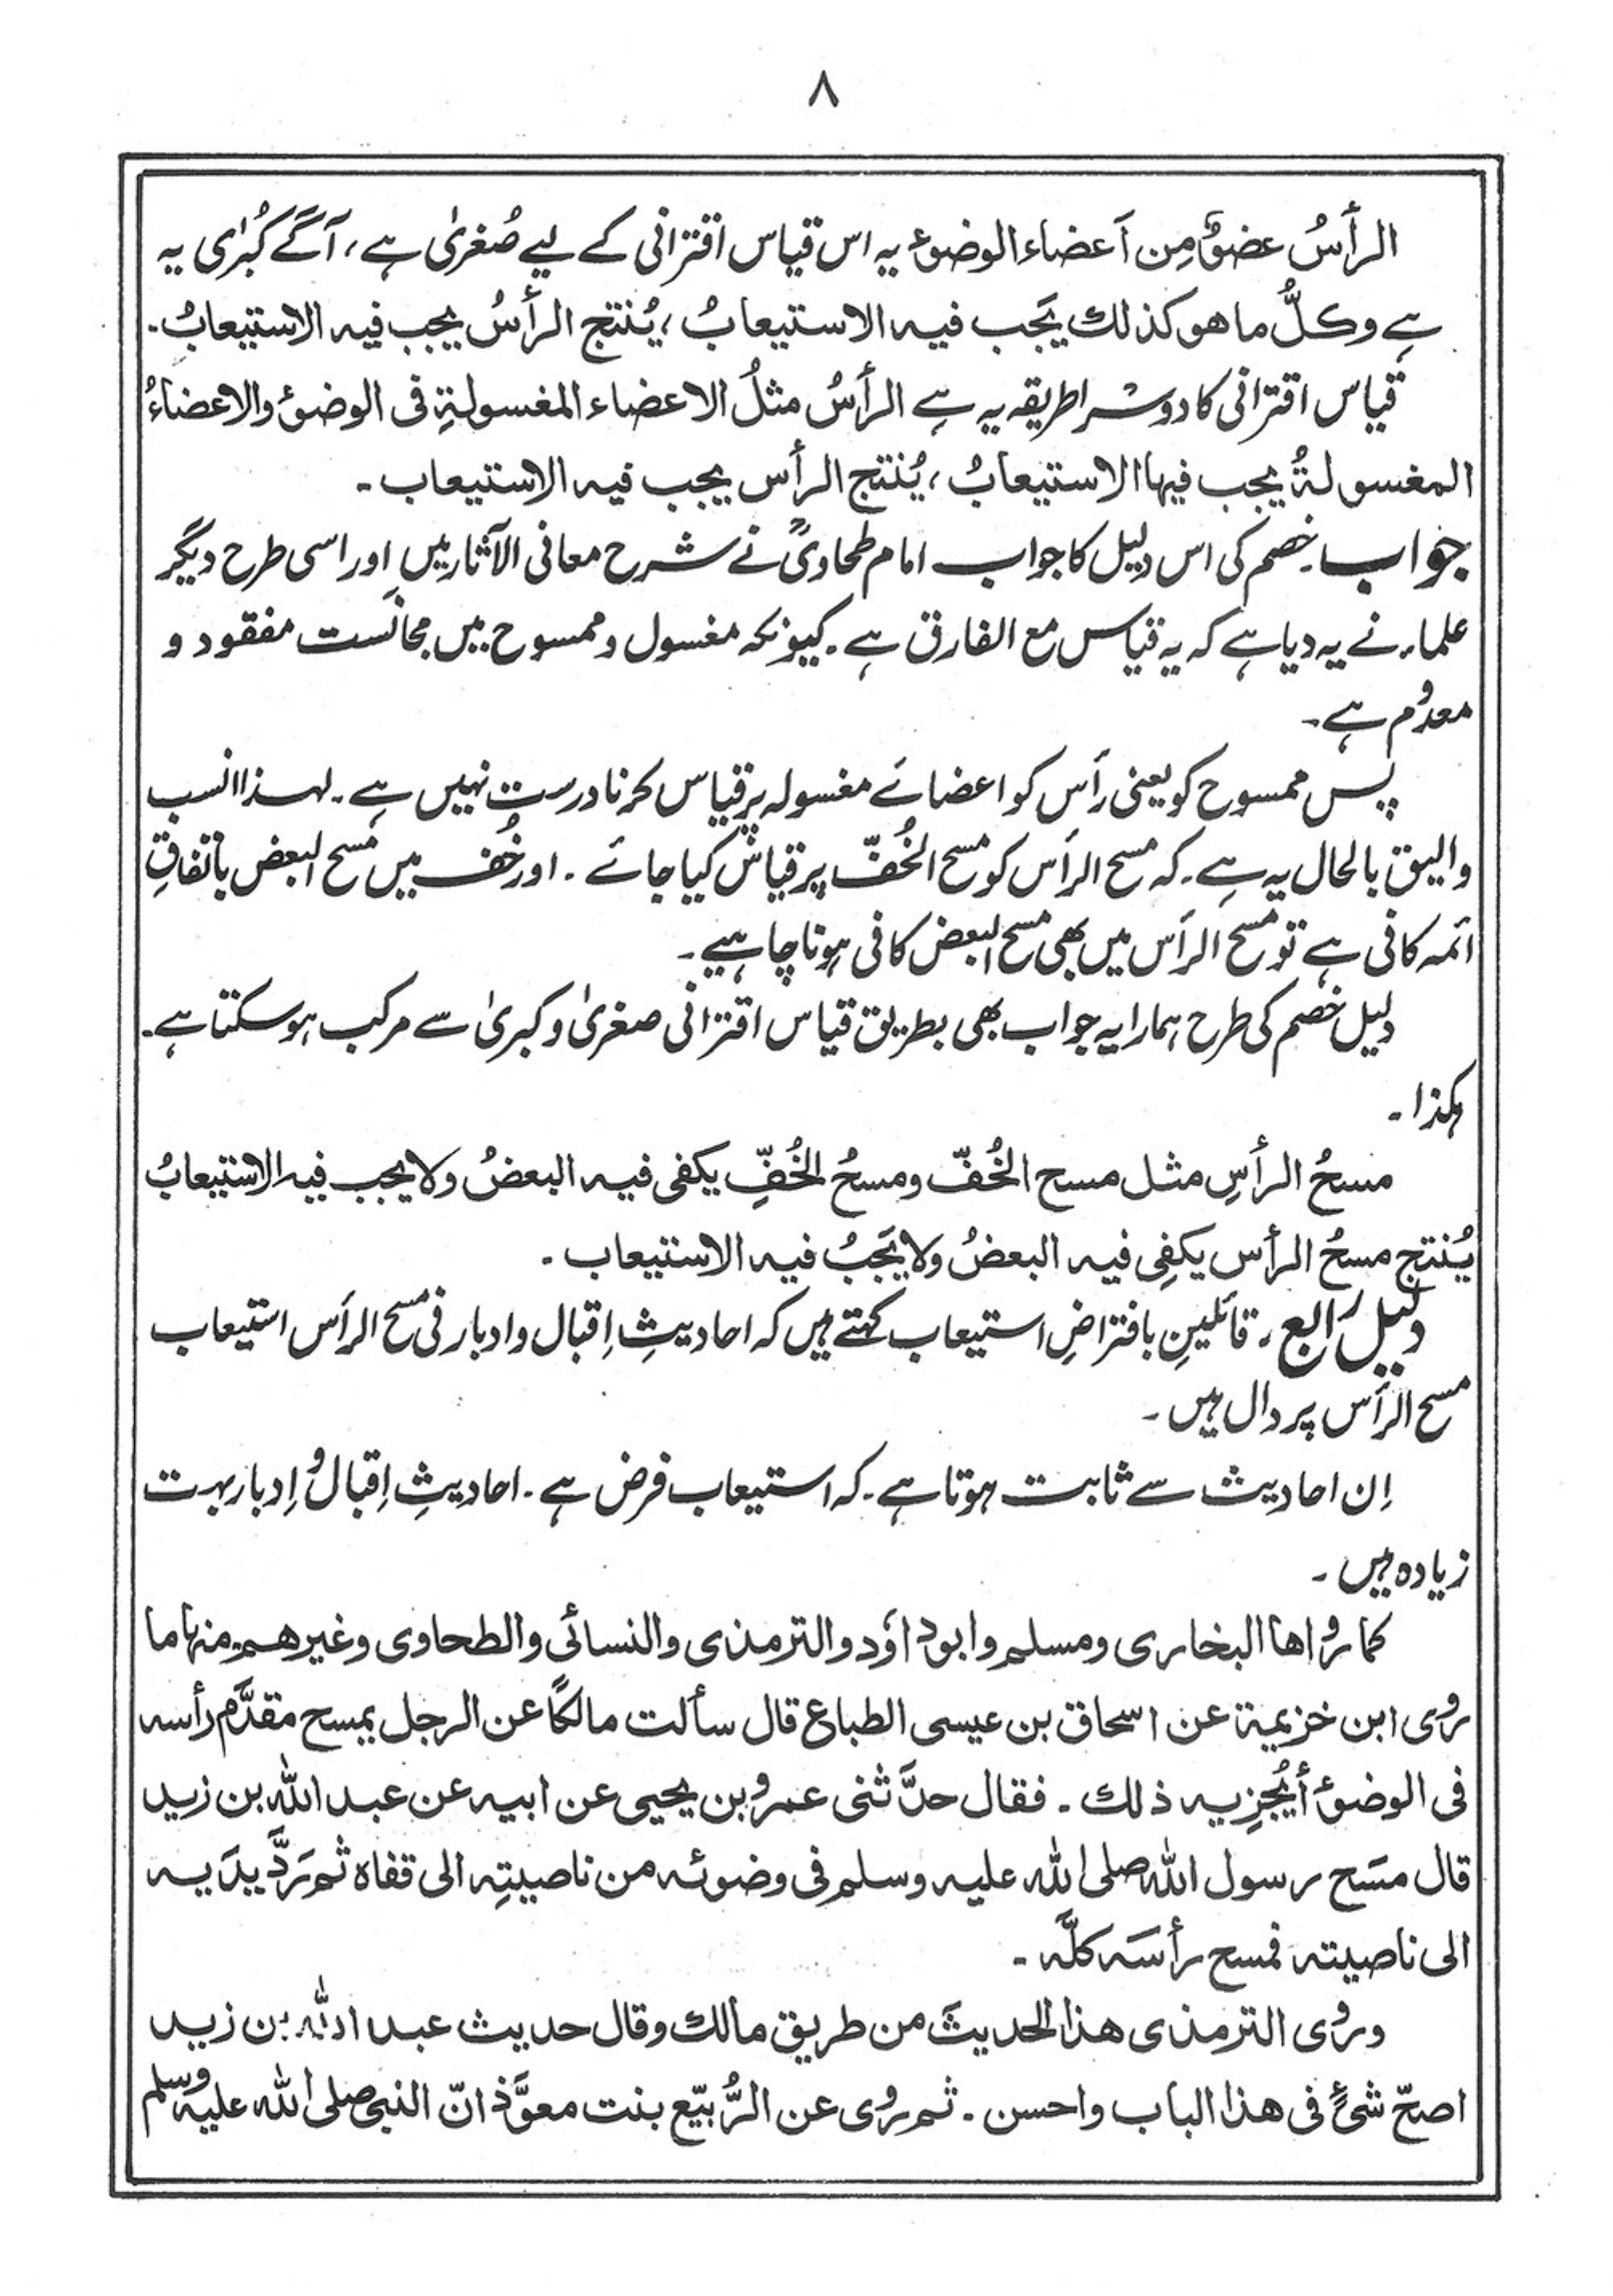 ٨
الرأسُ عضوٌ مِن اَعضاء الوضوء یہ اس قیاس اقترانی کے لیے صُغریٰ ہے، آگے کُبریٰ یہ
ہے وکلُّ ما هو کذلك یَجب فیه الاستیعابُ، یُنتج الرأسُ یجب فیه الاستیعابُ۔
قیاس اقترانی کا دوسرا طریقہ یہ ہے الرأسُ مثلُ الاعضاء المغسولةِ فی الوضوءِ والاعضاءُ
المغسولةُ یجب فیها الاستیعابُ، یُنتج الرأس یجب فیه الاستیعاب۔
جواب۔ خصم کی اس دلیل کا جواب امام طحاویؒ نے شرح معانی الآثار میں اور اسی طرح دیگر
علماء نے یہ دیا ہے کہ یہ قیاس مع الفارق ہے۔ کیونکہ مغسول و ممسوح میں مجانَست مفقود و
معدُوم ہے۔
پس ممسوح کو یعنی رأس کو اعضائے مغسولہ پر قیاس کرنا درست نہیں ہے۔ لہٰذا انسب
والیق بالحال یہ ہے۔ کہ مسح الرأس کو مسح الخُفّ پر قیاس کیا جائے۔ اور خُف میں مسح البعض باتفاقِ
ائمہ کافی ہے تو مسح الرأس میں بھی مسح البعض کافی ہونا چاہیے۔
دلیلِ خصم کی طرح ہمارا یہ جواب بھی بطریق قیاس اقترانی صغریٰ و کبریٰ سے مرکب ہوسکتا ہے۔
ہکذا۔
مسحُ الرأسِ مثل مسح الخُفّ ومسحُ الخُفِّ یکفی فیه البعضُ ولا یجب فیه الاستیعابُ
یُنتج مسحُ الرأس یکفِی فیه البعضُ ولا یَجبُ فیه الاستیعاب۔
دلیل رابع، قائلینِ بافتراضِ استیعاب کہتے ہیں کہ احادیثِ اِقبال وادبار فی مسح الرأس استیعاب
مسح الرأس پر دال ہیں۔
اِن احادیث سے ثابت ہوتا ہے۔ کہ استیعاب فرض ہے۔ احادیثِ اِقبال و اِدبار بہت
زیادہ ہیں۔
کما رواها البخاری ومسلم وابوداوٗد والترمذی والنسائی والطحاوی وغیرهم۔ منها ما
روی ابن خزیمة عن اسحاق بن عیسی الطباع قال سألت مالکًا عن الرجل یمسح مقدَّم رأسه
فی الوضوءِ أیُجزیه ذلك۔ فقال حدَّثنی عمرو بن یحیی عن ابیه عن عبد الله بن زید
قال مسَح رسول الله صلی الله علیه وسلم فی وضوئه من ناصیتِه الی قفاه ثم ردَّ یدَیه
الی ناصیته فمسح رأسَه کلَّه۔
وروی الترمذی هذا الحدیثَ من طریق مالك وقال حدیث عبد الله بن زید
اصحّ شیءٍ فی هذا الباب واحسن۔ ثم روی عن الرُّبیّع بنت معوَّذ انّ النبی صلی الله علیه وسلم